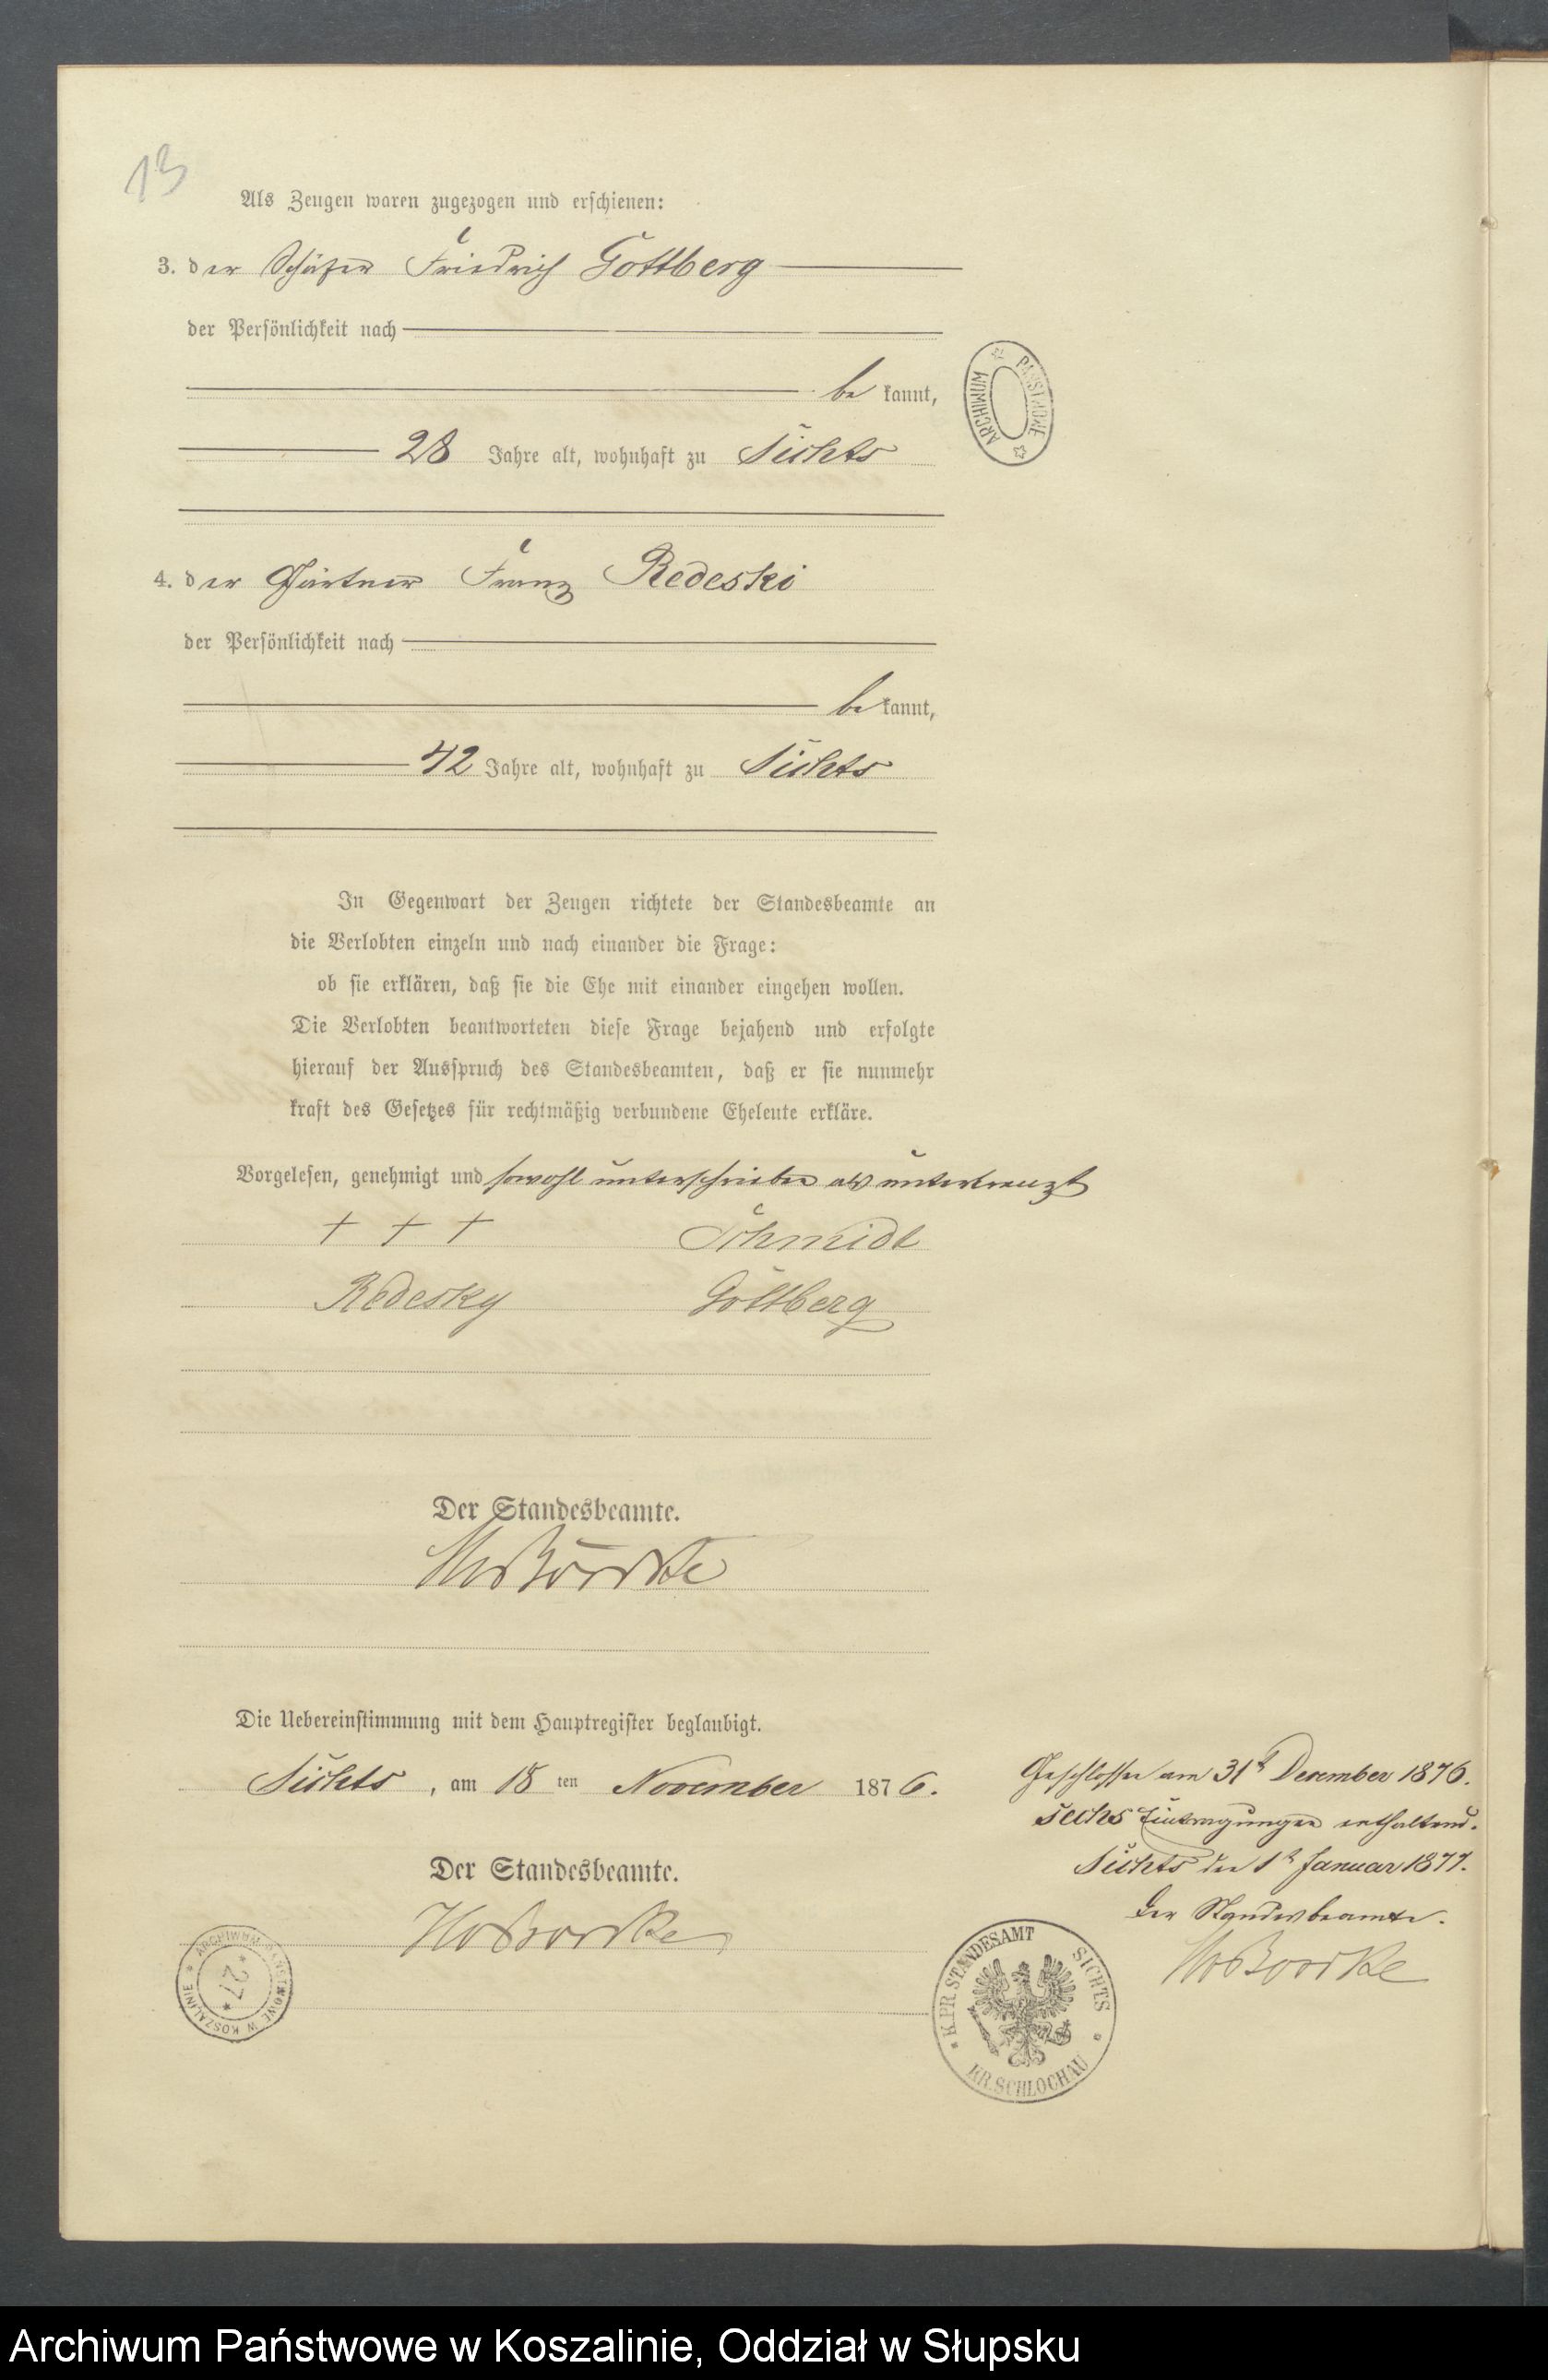 13
Als Zeugen waren zugezogen und erschienen:
3. der Schäfer Friedrich Gottberg
der Persönlichkeit nach
be kannt,
28 Jahre alt, wohnhaft zu Sichts
4. der Gärtner Franz Redeski
der Persönlichkeit nach
be kannt,
42 Jahre alt, wohnhaft zu Sichts
In Gegenwart der Zeugen richtete der Standesbeamte an
die Verlobten einzeln und nach einander die Frage:
ob sie erklären, daß sie die Ehe mit einander eingehen wollen.
Die Verlobten beantworteten diese Frage bejahend und erfolgte
hierauf der Ausspruch des Standesbeamten, daß er sie nunmehr
kraft des Gesetzes für rechtmäßig verbundene Eheleute erkläre.
Vorgelesen, genehmigt und sowohl unterschrieben als unterkreuzt
+ + + Schmidt
Redesky Gottberg
Der Standesbeamte.
Die Uebereinstimmung mit dem Hauptregister beglaubigt.
Sichts, am 18 ten November 1876.
Der Standesbeamte.
Geschlossen am 31t Dezember 1876.
sechs Eintragungen enthaltend.
Sichts den 1t Januar 1877.
Der Standesbeamte.
ARCHIWUM PAŃSTWOWE
ARCHIWUM PAŃSTWOWE W KOSZALINIE
*27*
K. PR. STANDESAMT SICHTS
KR. SCHLOCHAU
Archiwum Państwowe w Koszalinie, Oddział w Słupsku